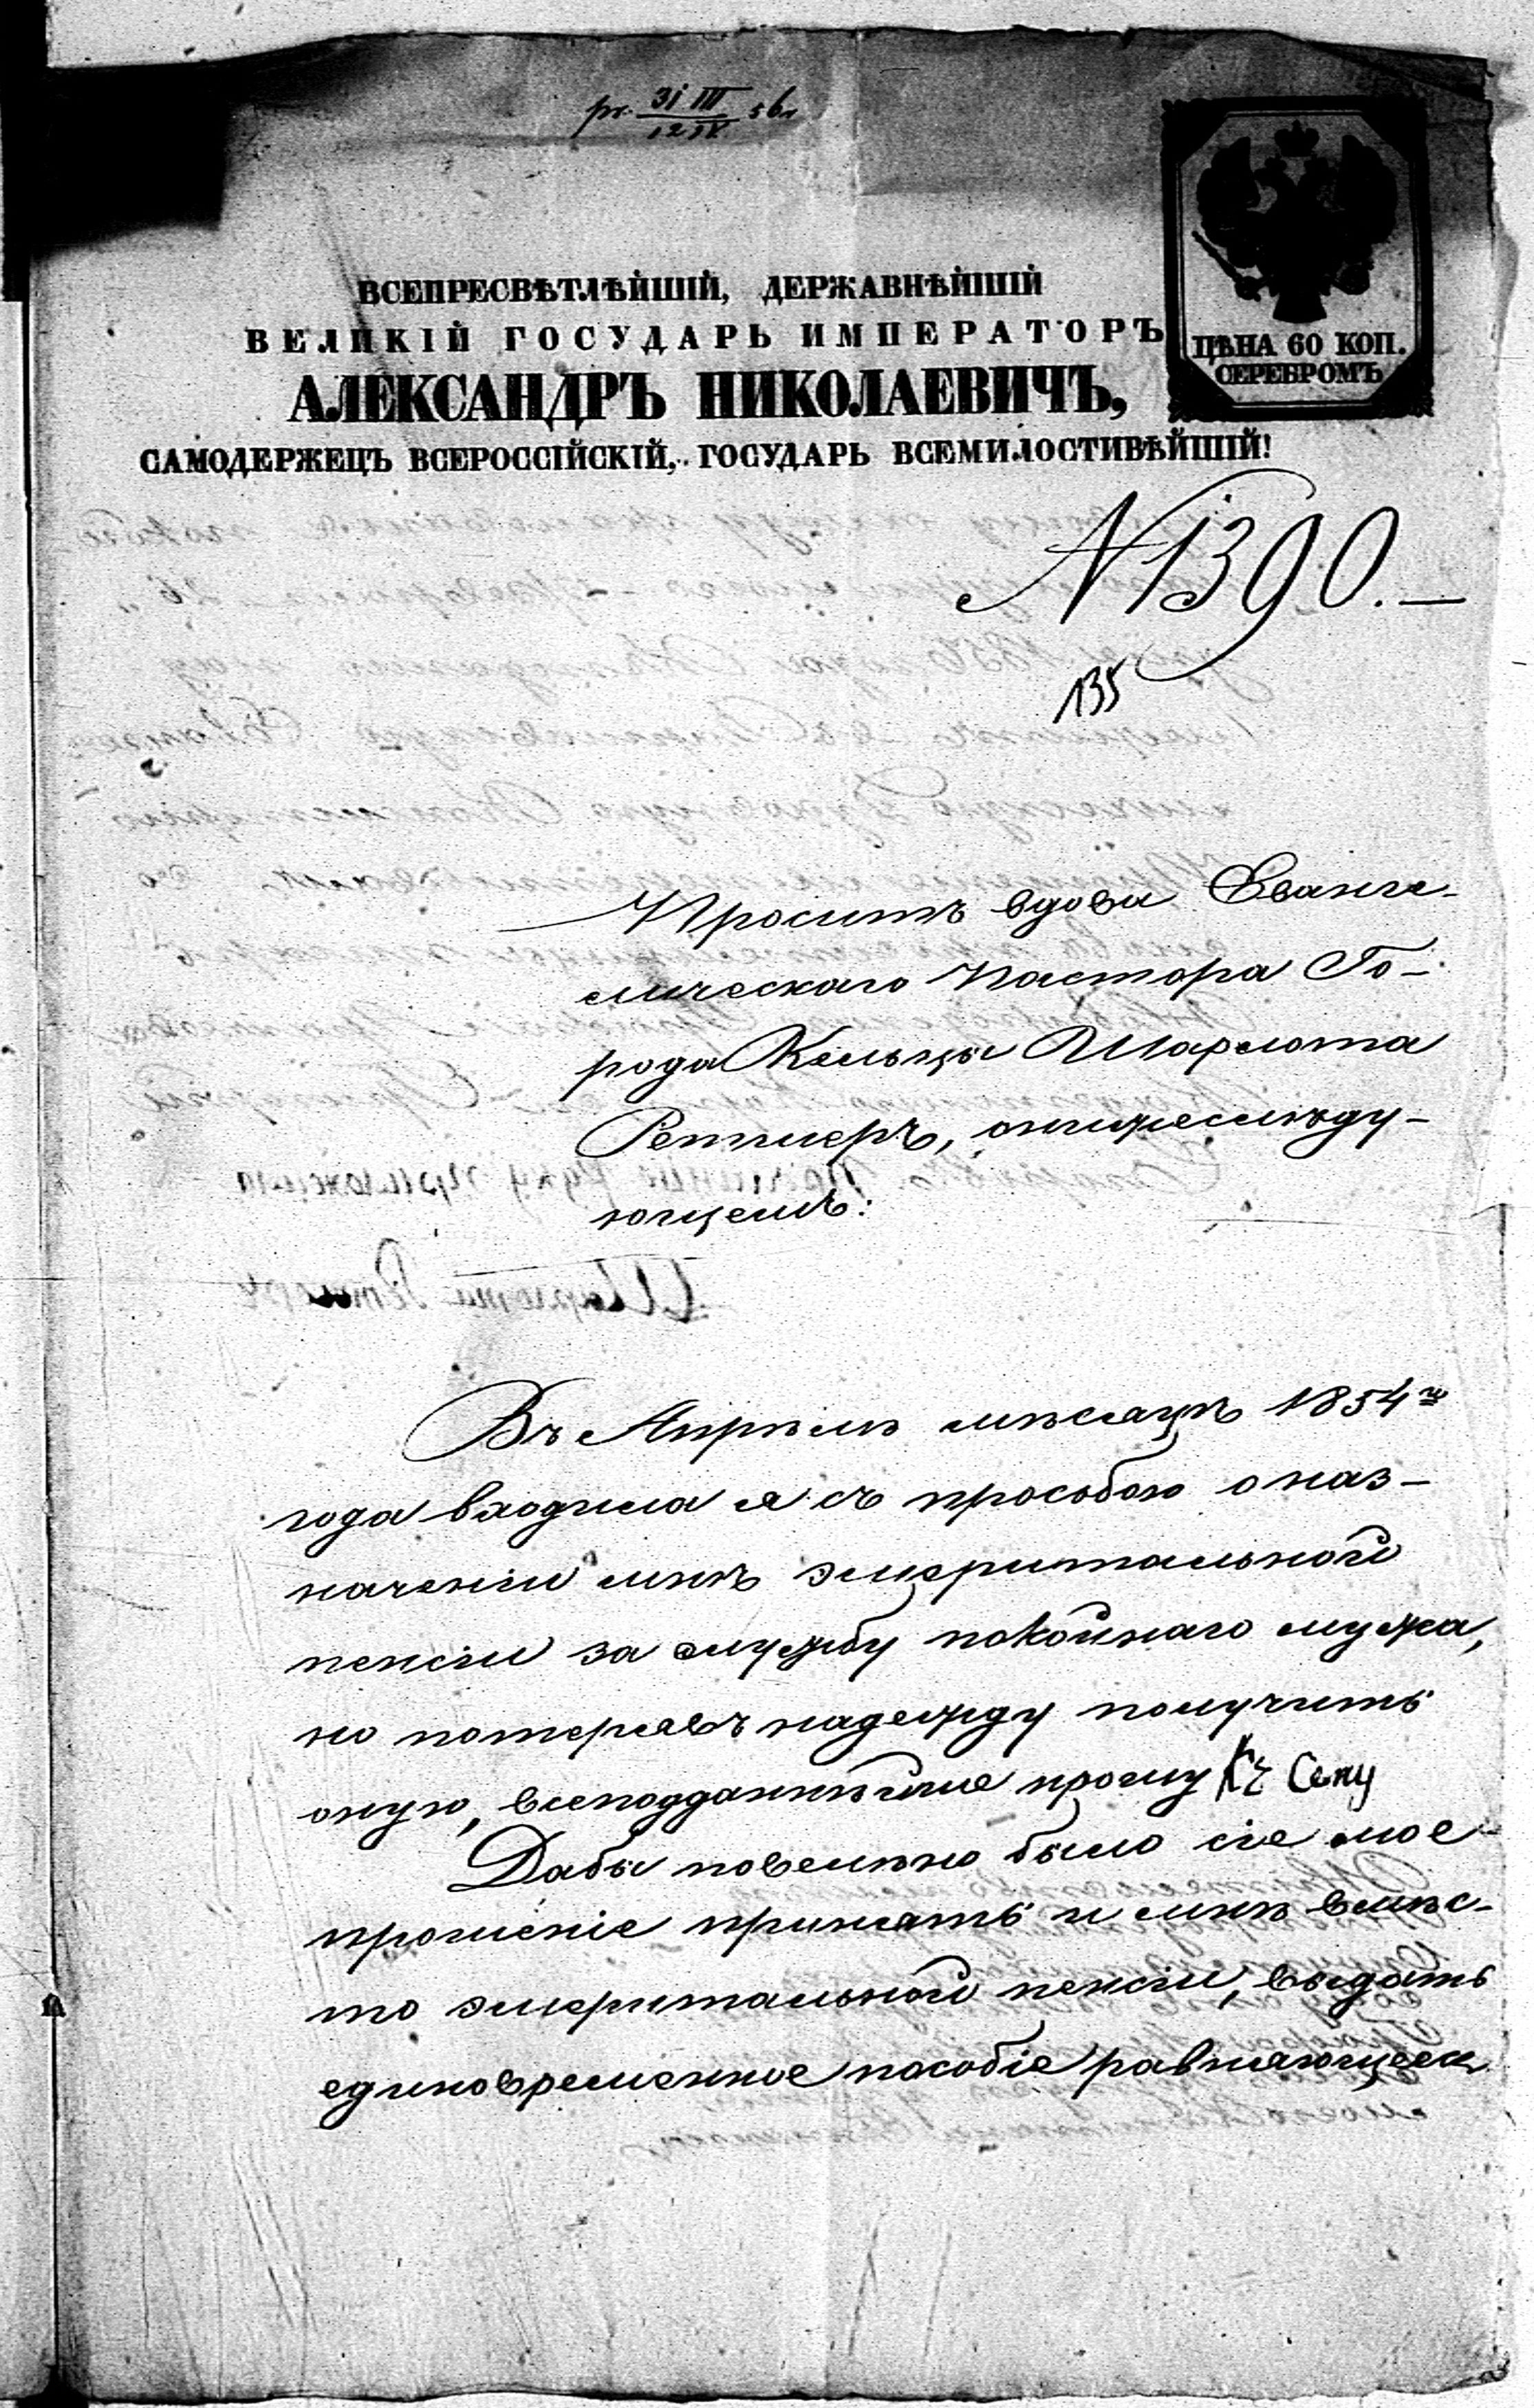 pr. 31 III 56
12 IV
ВСЕПРЕСВѢТЛѢЙШІЙ, ДЕРЖАВНѢЙШІЙ
ВЕЛИКІЙ ГОСУДАРЬ ИМПЕРАТОРЪ
АЛЕКСАНДРЪ НИКОЛАЕВИЧЪ,
САМОДЕРЖЕЦЪ ВСЕРОССІЙСКІЙ, ГОСУДАРЬ ВСЕМИЛОСТИВѢЙШІЙ!
ЦѢНА 60 КОП.
СЕРЕБРОМЪ
N 1390.—
135
Проситъ вдова Еванге-
лическаго Пастора Го-
рода Кельцы Шарлота
Ретмеръ, о нижеслѣду-
ющемъ:
Въ Апрѣлѣ мѣсяцѣ 1854го
года входила я съ прозьбою о наз-
наченіи мнѣ эмеритальной
пенсіи за службу покойнаго мужа,
но потерявъ надежду получить
оную, всеподданнѣйше прошу Къ сему
Дабы повелѣно было сіе мое
прошеніе принять и мнѣ вмѣс-
то эмеритальной пенсіи, выдать
единовременное пособіе равняющееся